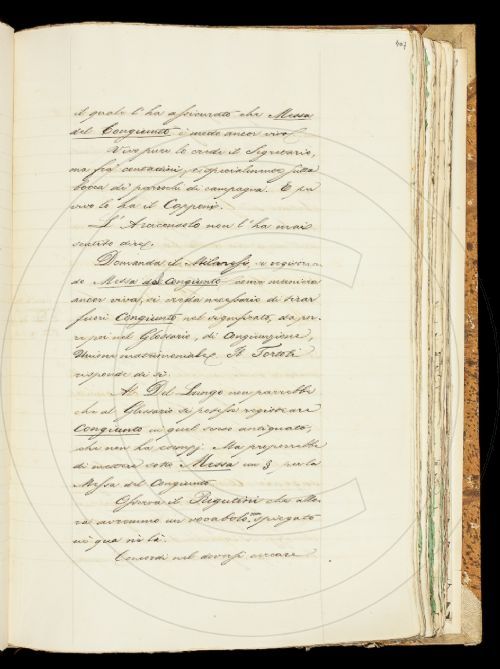 il quale l'ha assicurato che Messa
del Congiunto è modo ancor vivo.
Vivo pure lo crede il Segretario,
ma fra contadini, e specialmente sulla
bocca di parrochi di campagna. E per
vivo lo ha il Capponi.
L'Arciconsolo non l'ha mai
sentito dire.
Domanda il Milanesi, se registran
do Messa del Congiunto come maniera
ancor viva, si creda necessario di tirar
fuori Congiunto nel significato, da por
re poi nel Glossario, di Congiunzione,
Unione matrimoniale. Il Tortoli
risponde di sì.
Al Del Lungo non parrebbe
che al Glossario si potesse registrare
Congiunto in quel senso antiquato,
che non ha esempj. Ma preporrebbe
di mettere sotto Messa un §. per la
Messa del Congiunto.
Osserva il Rigutini che allo
ra avremmo un vocabolo non spiegato
nè qua nè là.
Concordi nel doversi cercare